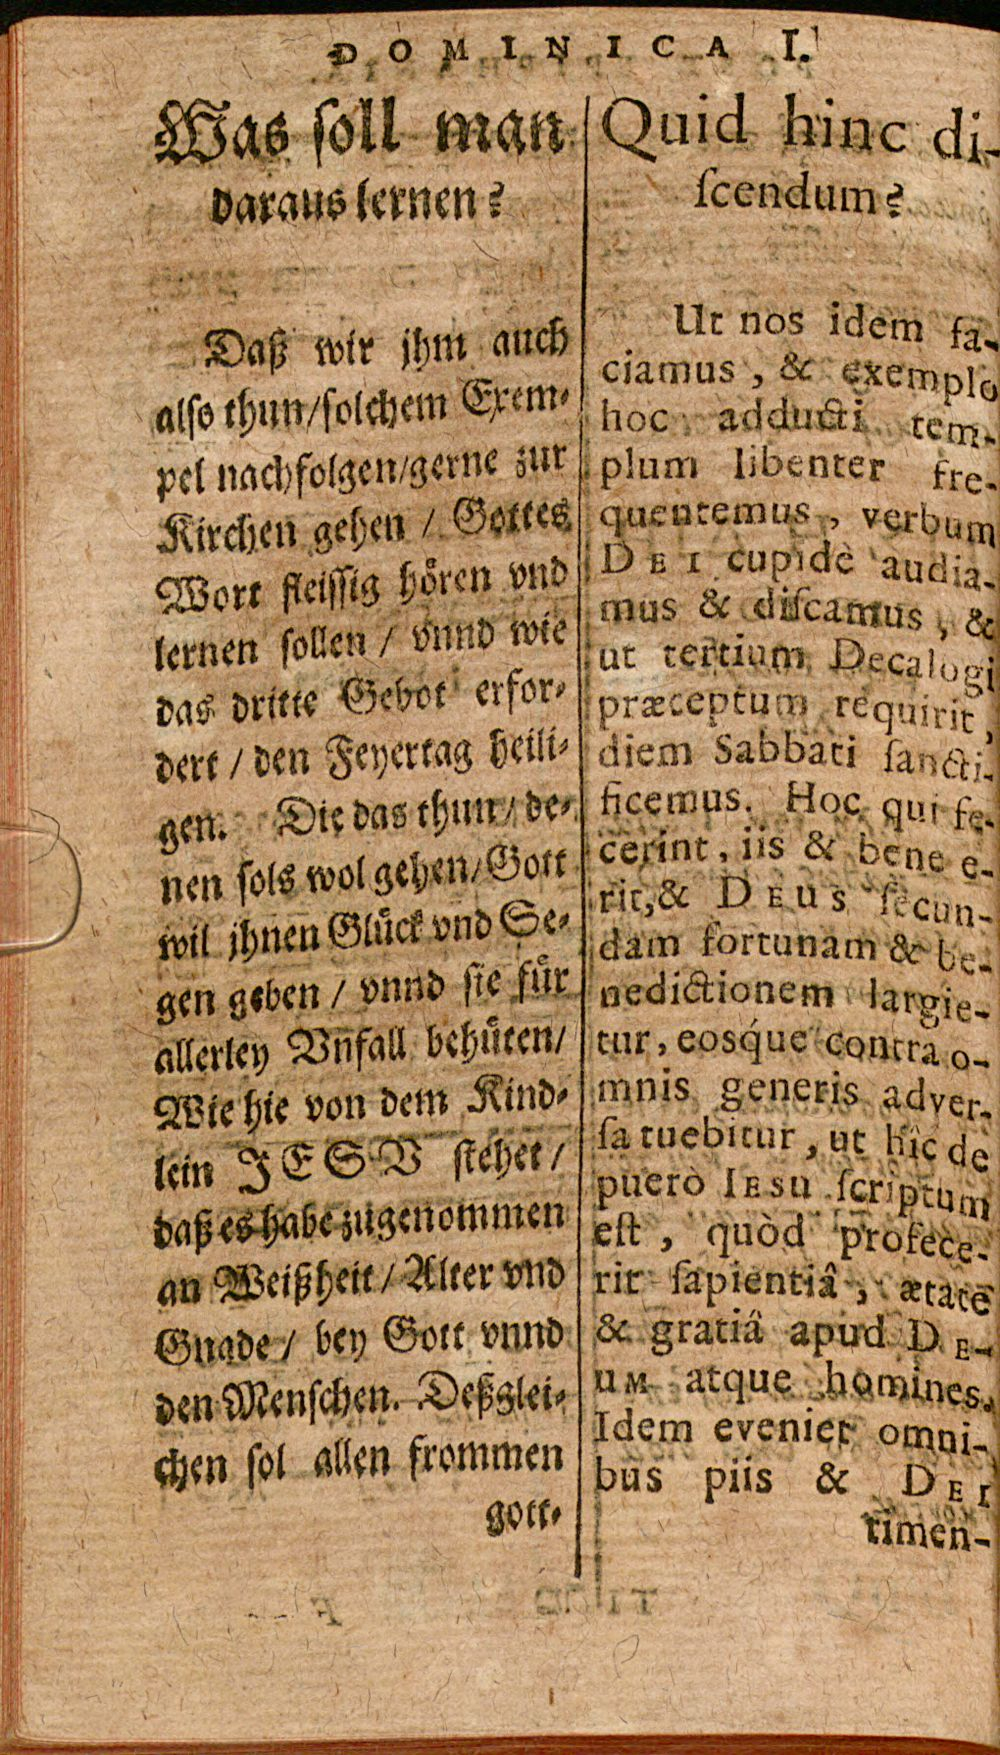 DOMINICA I.
Was ſoll man
daraus lernen?
Daß wir jhm auch
alſo thun/ſolchem Exem-
pel nachfolgen/gerne zur
Kirchen gehen / Gottes
Wort fleiſſig hoͤren vnd
lernen ſollen / vnnd wie
das dritte Gebot erfor-
dert / den Feyertag heili-
gen. Die das thun/ de-
nen ſols wol gehen/Gott
wil jhnen Gluͤck vnd Se-
gen geben / vnnd ſie fuͤr
allerley Vnfall behuͤten/
Wie hie von dem Kind-
lein JESV ſtehet/
daß es habe zugenommen
an Weißheit/ Alter vnd
Gnade/ bey Gott vnnd
den Menſchen. Deßglei-
chen ſol allen frommen
gott-
Quid hinc di-
ſcendum?
Ut nos idem fa-
ciamus, & exemplo
hoc adducti tem-
plum libenter fre-
quentemus, verbum
DEI cupidè audia-
mus & diſcamus, &
ut tertium Decalogi
præceptum requirit,
diem Sabbati ſancti-
ficemus. Hoc qui fe-
cerint, iis & bene e-
rit, & DEUS ſecun-
dam fortunam & be-
nedictionem largie-
tur, eosq́ue contra o-
mnis generis adver-
ſa tuebitur, ut hîc de
puerò IESU ſcriptum
eſt, quòd profece-
rit ſapientiâ, ætate
& gratiâ apud DE-
UM atque homines.
Idem eveniet omni-
bus piis & DEI
timen-